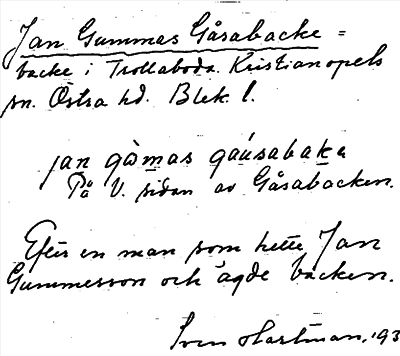 Jan Gummas Gåsabacke =
backe i Trollaboda. Kristianopels
sn. Östra hd. Blek. l.
jan gò̀mas gaúsabaka
På V. sidan av Gåsabacken.
Efter en man som hette Jan
Gummesson och ägde backen.
Sven Hartman, 193